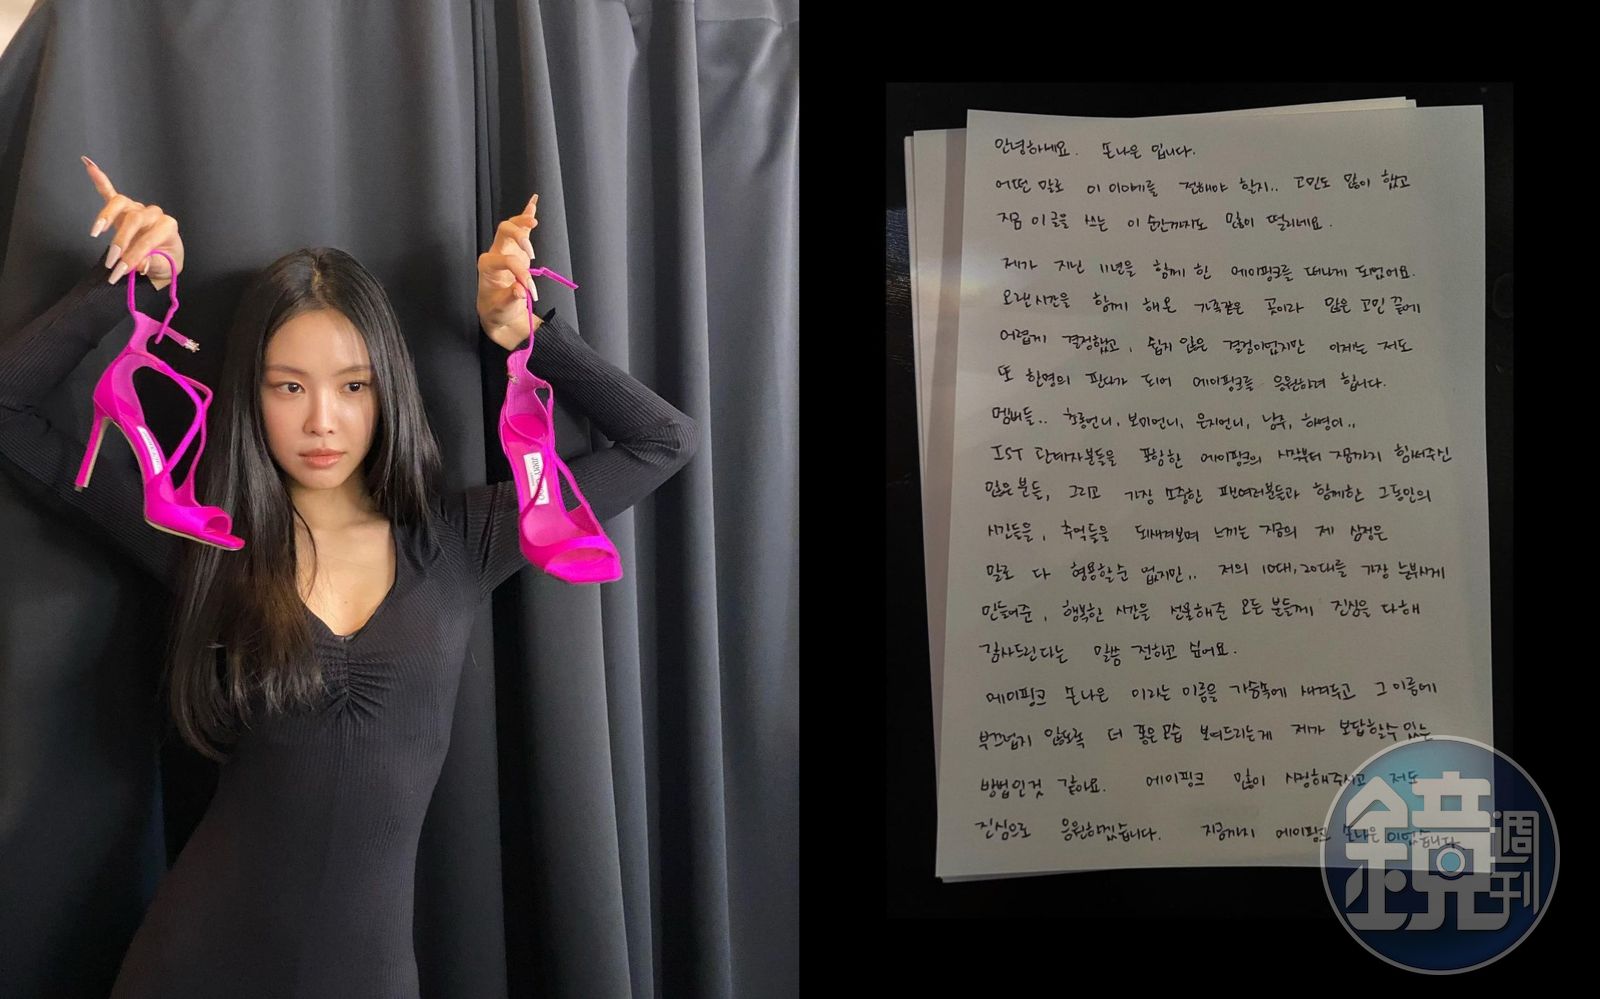 JIMMY CHOO
안녕하세요. 손나은 입니다.
어떤 말로 이 이야기를 전해야 할지.. 고민도 많이 했고
지금 이 글을 쓰는 이 순간까지도 많이 떨리네요.
제가 지난 11년을 함께 한 에이핑크를 떠나게 되었어요.
오랜시간을 함께 해온 가족같은 곳이라 많은 고민 끝에
어렵게 결정했고, 쉽지 않은 결정이었지만 이제는 저도
또 한명의 판다가 되어 에이핑크를 응원하려 합니다.
멤버들.. 초롱언니, 보미언니, 은지언니, 남주, 하영이..
IST 관계자분들을 포함한 에이핑크의 시작부터 지금까지 힘써주신
많은 분들, 그리고 가장 소중한 팬여러분들과 함께한 그동안의
시간들을, 추억들을 되새겨보며 느끼는 지금의 제 심정은
말로 다 형용할순 없지만.. 저의 10대, 20대를 가장 눈부시게
만들어준, 행복한 시간을 선물해준 모든 분들께 진심을 다해
감사드린다는 말씀 전하고 싶어요.
에이핑크 손나은 이라는 이름을 가슴속에 새겨두고 그 이름에
부끄럽지 않도록 더 좋은 모습 보여드리는게 제가 보답할수 있는
방법인것 같아요. 에이핑크 많이 사랑해주시고 저도
진심으로 응원하겠습니다. 지금까지 에이핑크 손나은 이었습니다.
鏡週刊